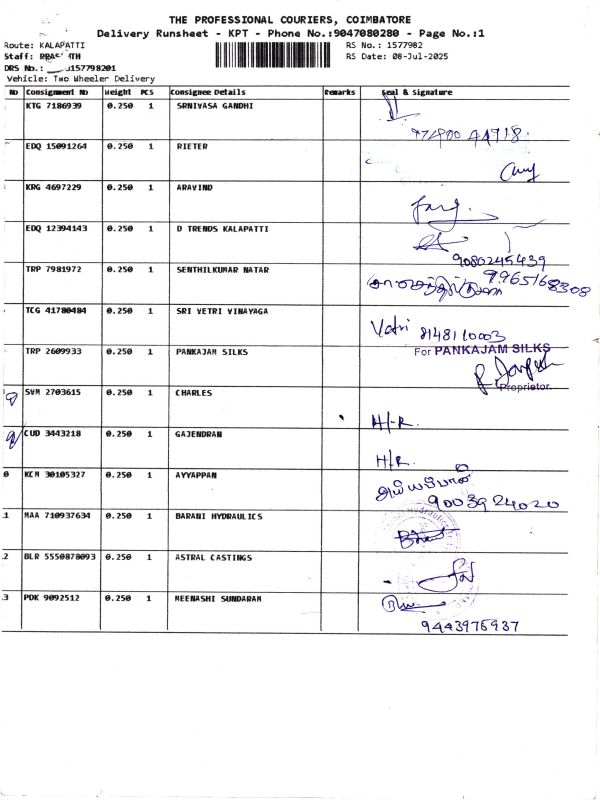 THE PROFESSIONAL COURIERS, COIMBATORE
Delivery Runsheet - KPT - Phone No.:9047080280 - Page No.:1
Route: KALAPATTI RS No.: 1577982
Staff: RS Date: 08-Jul-2025
DRS No.:
Vehicle: Two Wheeler Delivery
No Consignment No Weight PCS Consignee Details Remarks Seal & Signature
KTG 7186939 0.250 1 SRNIVASA GANDHI
EDQ 15091264 0.250 1 RIETER
KRG 4697229 0.250 1 ARAVIND
EDQ 12394143 0.250 1 D TRENDS KALAPATTI
9080245439
TRP 7981972 0.250 1 SENTHILKUMAR NATAR
9965168308
TCG 41780484 0.250 1 SRI VETRI VINAYAGA
Vetri 8148110003
TRP 2609933 0.250 1 PANKAJAM SILKS
For PANKAJAM SILKS
Proprietor
SVM 2703615 0.250 1 CHARLES
H/R
CUD 3443218 0.250 1 GAJENDRAN
H/R.
KCM 30105327 0.250 1 AYYAPPAN
9003924020
MAA 710937634 0.250 1 BARANI HYDRAULICS
BLR 5550878093 0.250 1 ASTRAL CASTINGS
PDK 9092512 0.250 1 MEENASHI SUNDARAM
9443975937